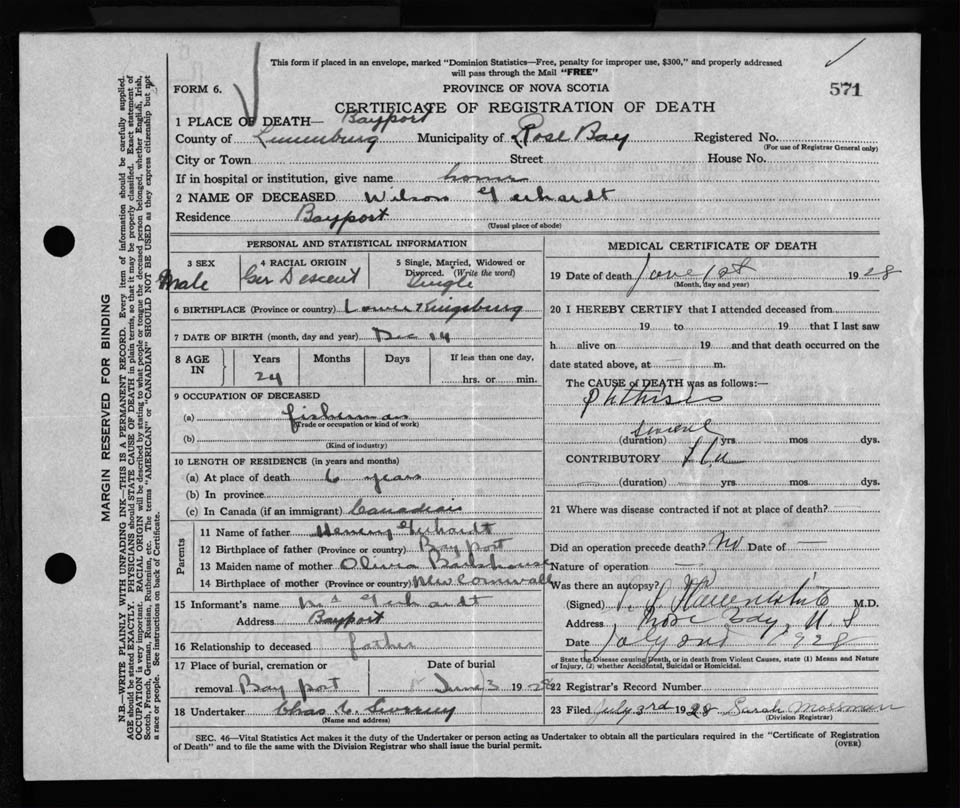 This form if placed in an envelope, marked "Dominion Statistics—Free, penalty for improper use, $300," and properly addressed
will pass through the Mail "FREE"
FORM 6.
PROVINCE OF NOVA SCOTIA
571
CERTIFICATE OF REGISTRATION OF DEATH
1 PLACE OF DEATH— Bayport
County of Lunenburg Municipality of Rose Bay Registered No.
(For use of Registrar General only)
City or Town Street House No.
If in hospital or institution, give name home
2 NAME OF DECEASED Wilson Gerhardt
Residence Bayport
(Usual place of abode)
PERSONAL AND STATISTICAL INFORMATION
3 SEX
Male
4 RACIAL ORIGIN
Ger Descent
5 Single, Married, Widowed or
Divorced. (Write the word)
Single
6 BIRTHPLACE (Province or country) Lower Kingsburg
7 DATE OF BIRTH (month, day and year) Dec 14
8 AGE IN Years Months Days If less than one day,
24 hrs. or min.
9 OCCUPATION OF DECEASED
(a) fisherman
(Trade or occupation or kind of work)
(b)
(Kind of industry)
10 LENGTH OF RESIDENCE (in years and months)
(a) At place of death 6 years
(b) In province
(c) In Canada (if an immigrant) Canadian
Parents
11 Name of father Henry Gerhardt
12 Birthplace of father (Province or country) Bayport
13 Maiden name of mother Olivia
14 Birthplace of mother (Province or country) New Cornwall
15 Informant's name Gerhardt
Address Bayport
16 Relationship to deceased father
17 Place of burial, cremation or
removal Bay port
Date of burial
June 3 1928
18 Undertaker Chas
(Name and address)
MEDICAL CERTIFICATE OF DEATH
19 Date of death June 1st 1928
(Month, day and year)
20 I HEREBY CERTIFY that I attended deceased from
19 to 19 that I last saw
h alive on 19 and that death occurred on the
date stated above, at — m.
The CAUSE of DEATH was as follows:—
Phthisis
several
(duration) yrs. mos dys.
CONTRIBUTORY Flu
(duration) yrs. mos. dys.
21 Where was disease contracted if not at place of death?
Did an operation precede death? No Date of —
Nature of operation —
Was there an autopsy? No
(Signed) M.D.
Address Rose Bay, N.S
Date July 2nd 1928
State the Disease causing Death, or in death from Violent Causes, state (1) Means and Nature
of Injury, (2) whether Accidental, Suicidal or Homicidal.
22 Registrar's Record Number
23 Filed July 3rd 1928 Sarah Mossman
(Division Registrar)
SEC. 46—Vital Statistics Act makes it the duty of the Undertaker or person acting as Undertaker to obtain all the particulars required in the "Certificate of Registration
of Death" and to file the same with the Division Registrar who shall issue the burial permit.
(OVER)
MARGIN RESERVED FOR BINDING
N.B.—WRITE PLAINLY WITH UNFADING INK—THIS IS A PERMANENT RECORD. Every item of information should be carefully supplied.
AGE should be stated EXACTLY. PHYSICIANS should STATE CAUSE OF DEATH in plain terms, so that it may be properly classified. Exact statement of
OCCUPATION is very important. RACIAL ORIGIN will be described by stating to what people or tongue the deceased person belonged, whether English, Irish,
Scotch, French, German, Russian, Ruthenian, etc. The terms "AMERICAN" or "CANADIAN" SHOULD NOT BE USED as they express citizenship but not
a race or people. See instructions on back of Certificate.